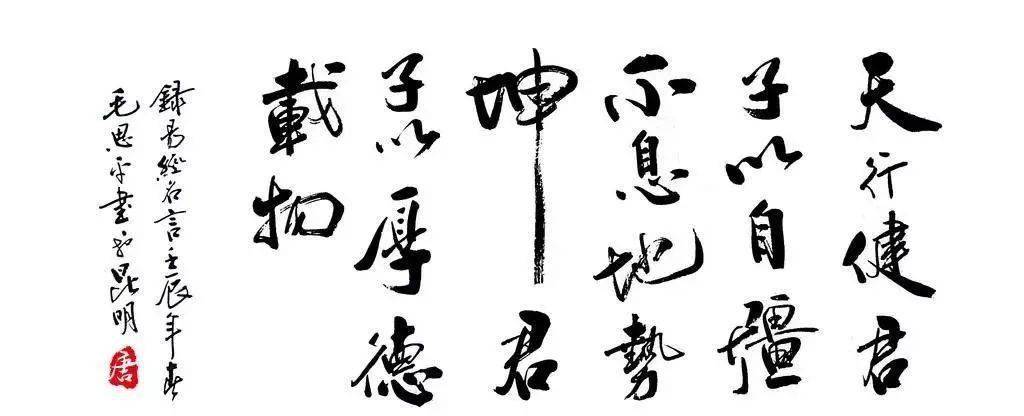 天行健君
子以自疆
不息地勢
坤君
子以厚德
載物
録易經名言壬辰年春
毛思平書於昆明